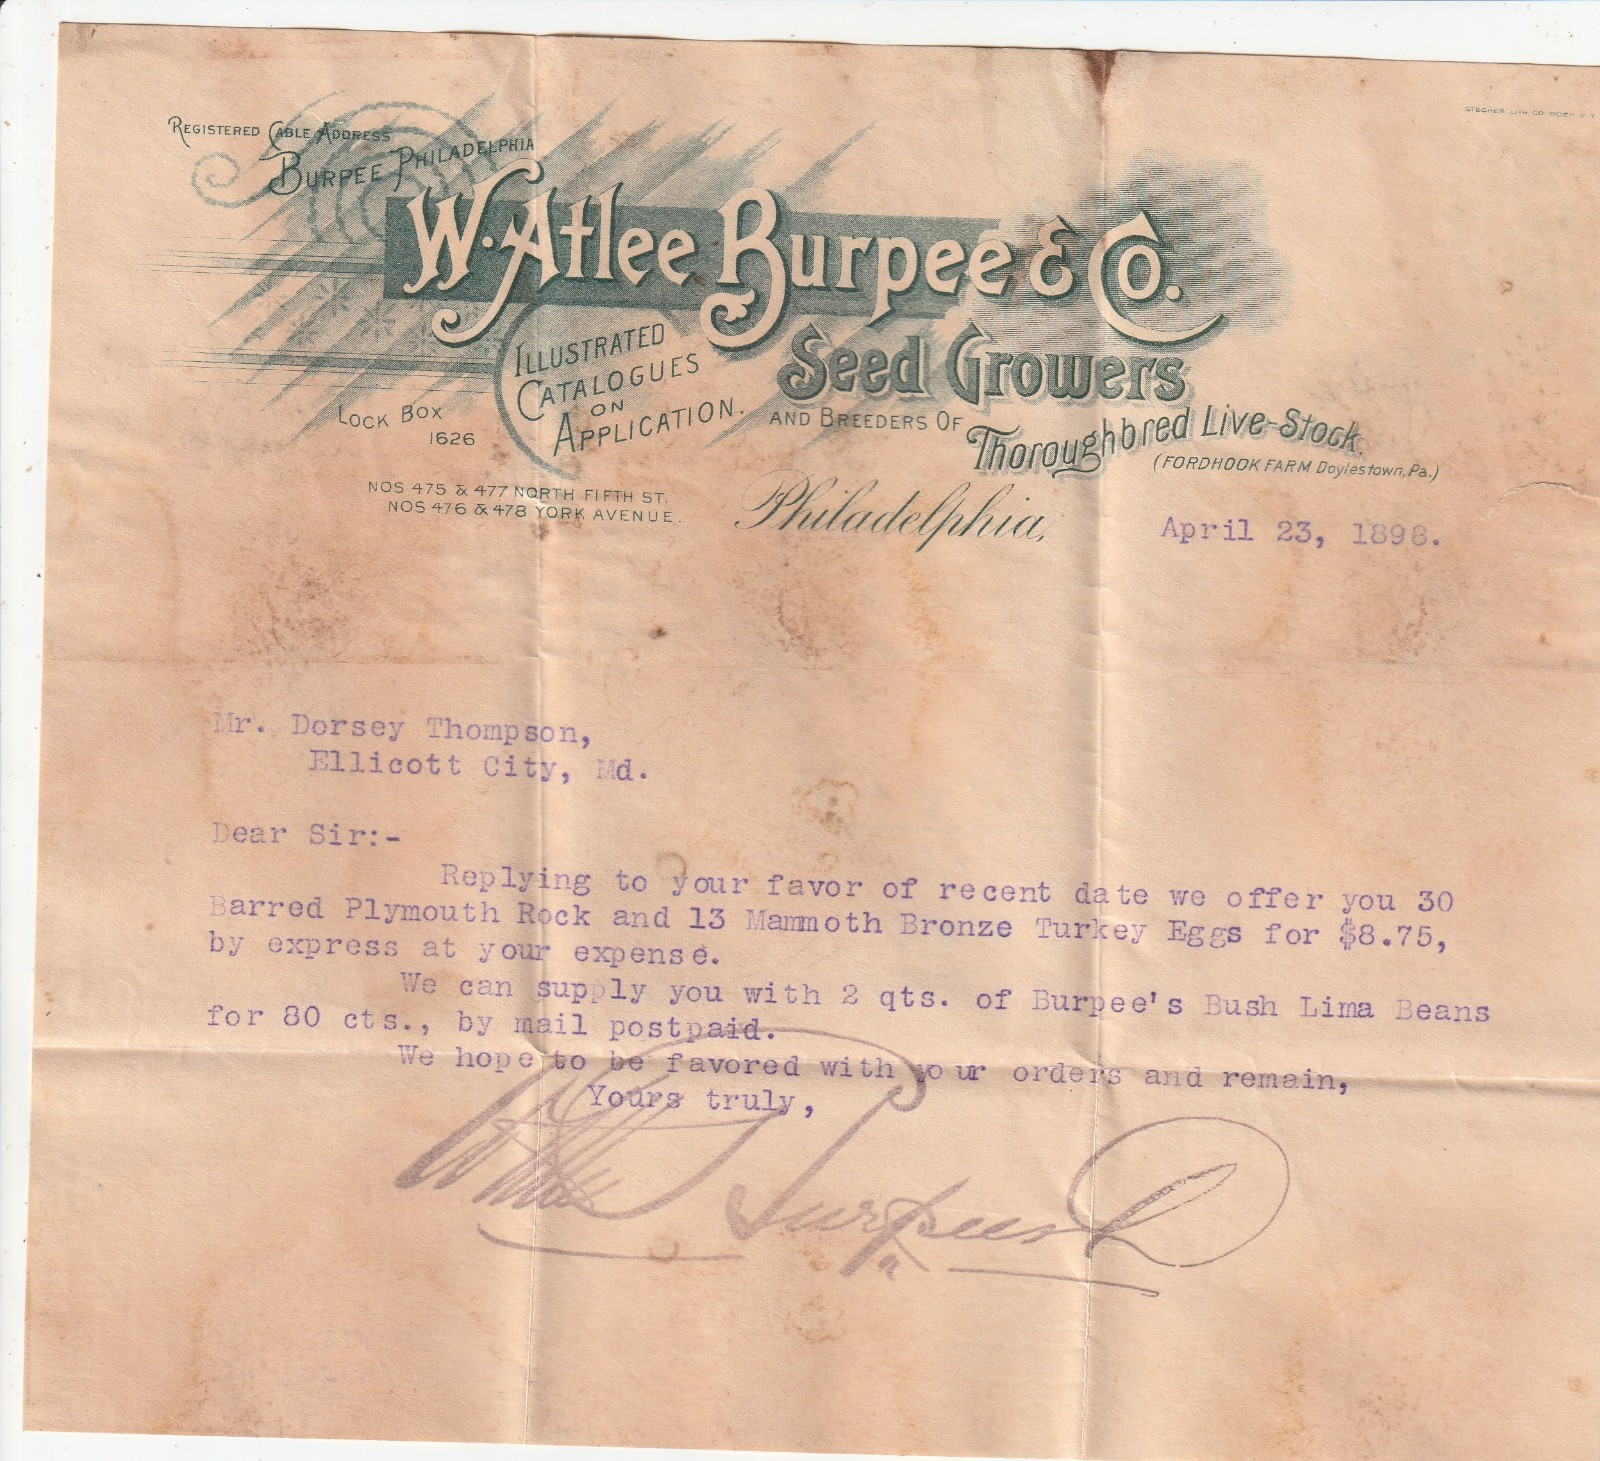 STECHER LITH. CO. ROCH. N.Y.
REGISTERED CABLE ADDRESS
BURPEE PHILADELPHIA
W. Atlee Burpee & Co.
Seed Growers
AND BREEDERS OF
Thoroughbred Live-Stock.
(FORDHOOK FARM Doylestown, Pa.)
ILLUSTRATED
CATALOGUES
ON
APPLICATION.
LOCK BOX
1626
NOS 475 & 477 NORTH FIFTH ST.
NOS 476 & 478 YORK AVENUE.
Philadelphia, April 23, 1898.
Mr. Dorsey Thompson,
Ellicott City, Md.
Dear Sir:-
Replying to your favor of recent date we offer you 30
Barred Plymouth Rock and 13 Mammoth Bronze Turkey Eggs for $8.75,
by express at your expense.
We can supply you with 2 qts. of Burpee's Bush Lima Beans
for 80 cts., by mail postpaid.
We hope to be favored with your orders and remain,
Yours truly,
W Atlee Burpee & Co